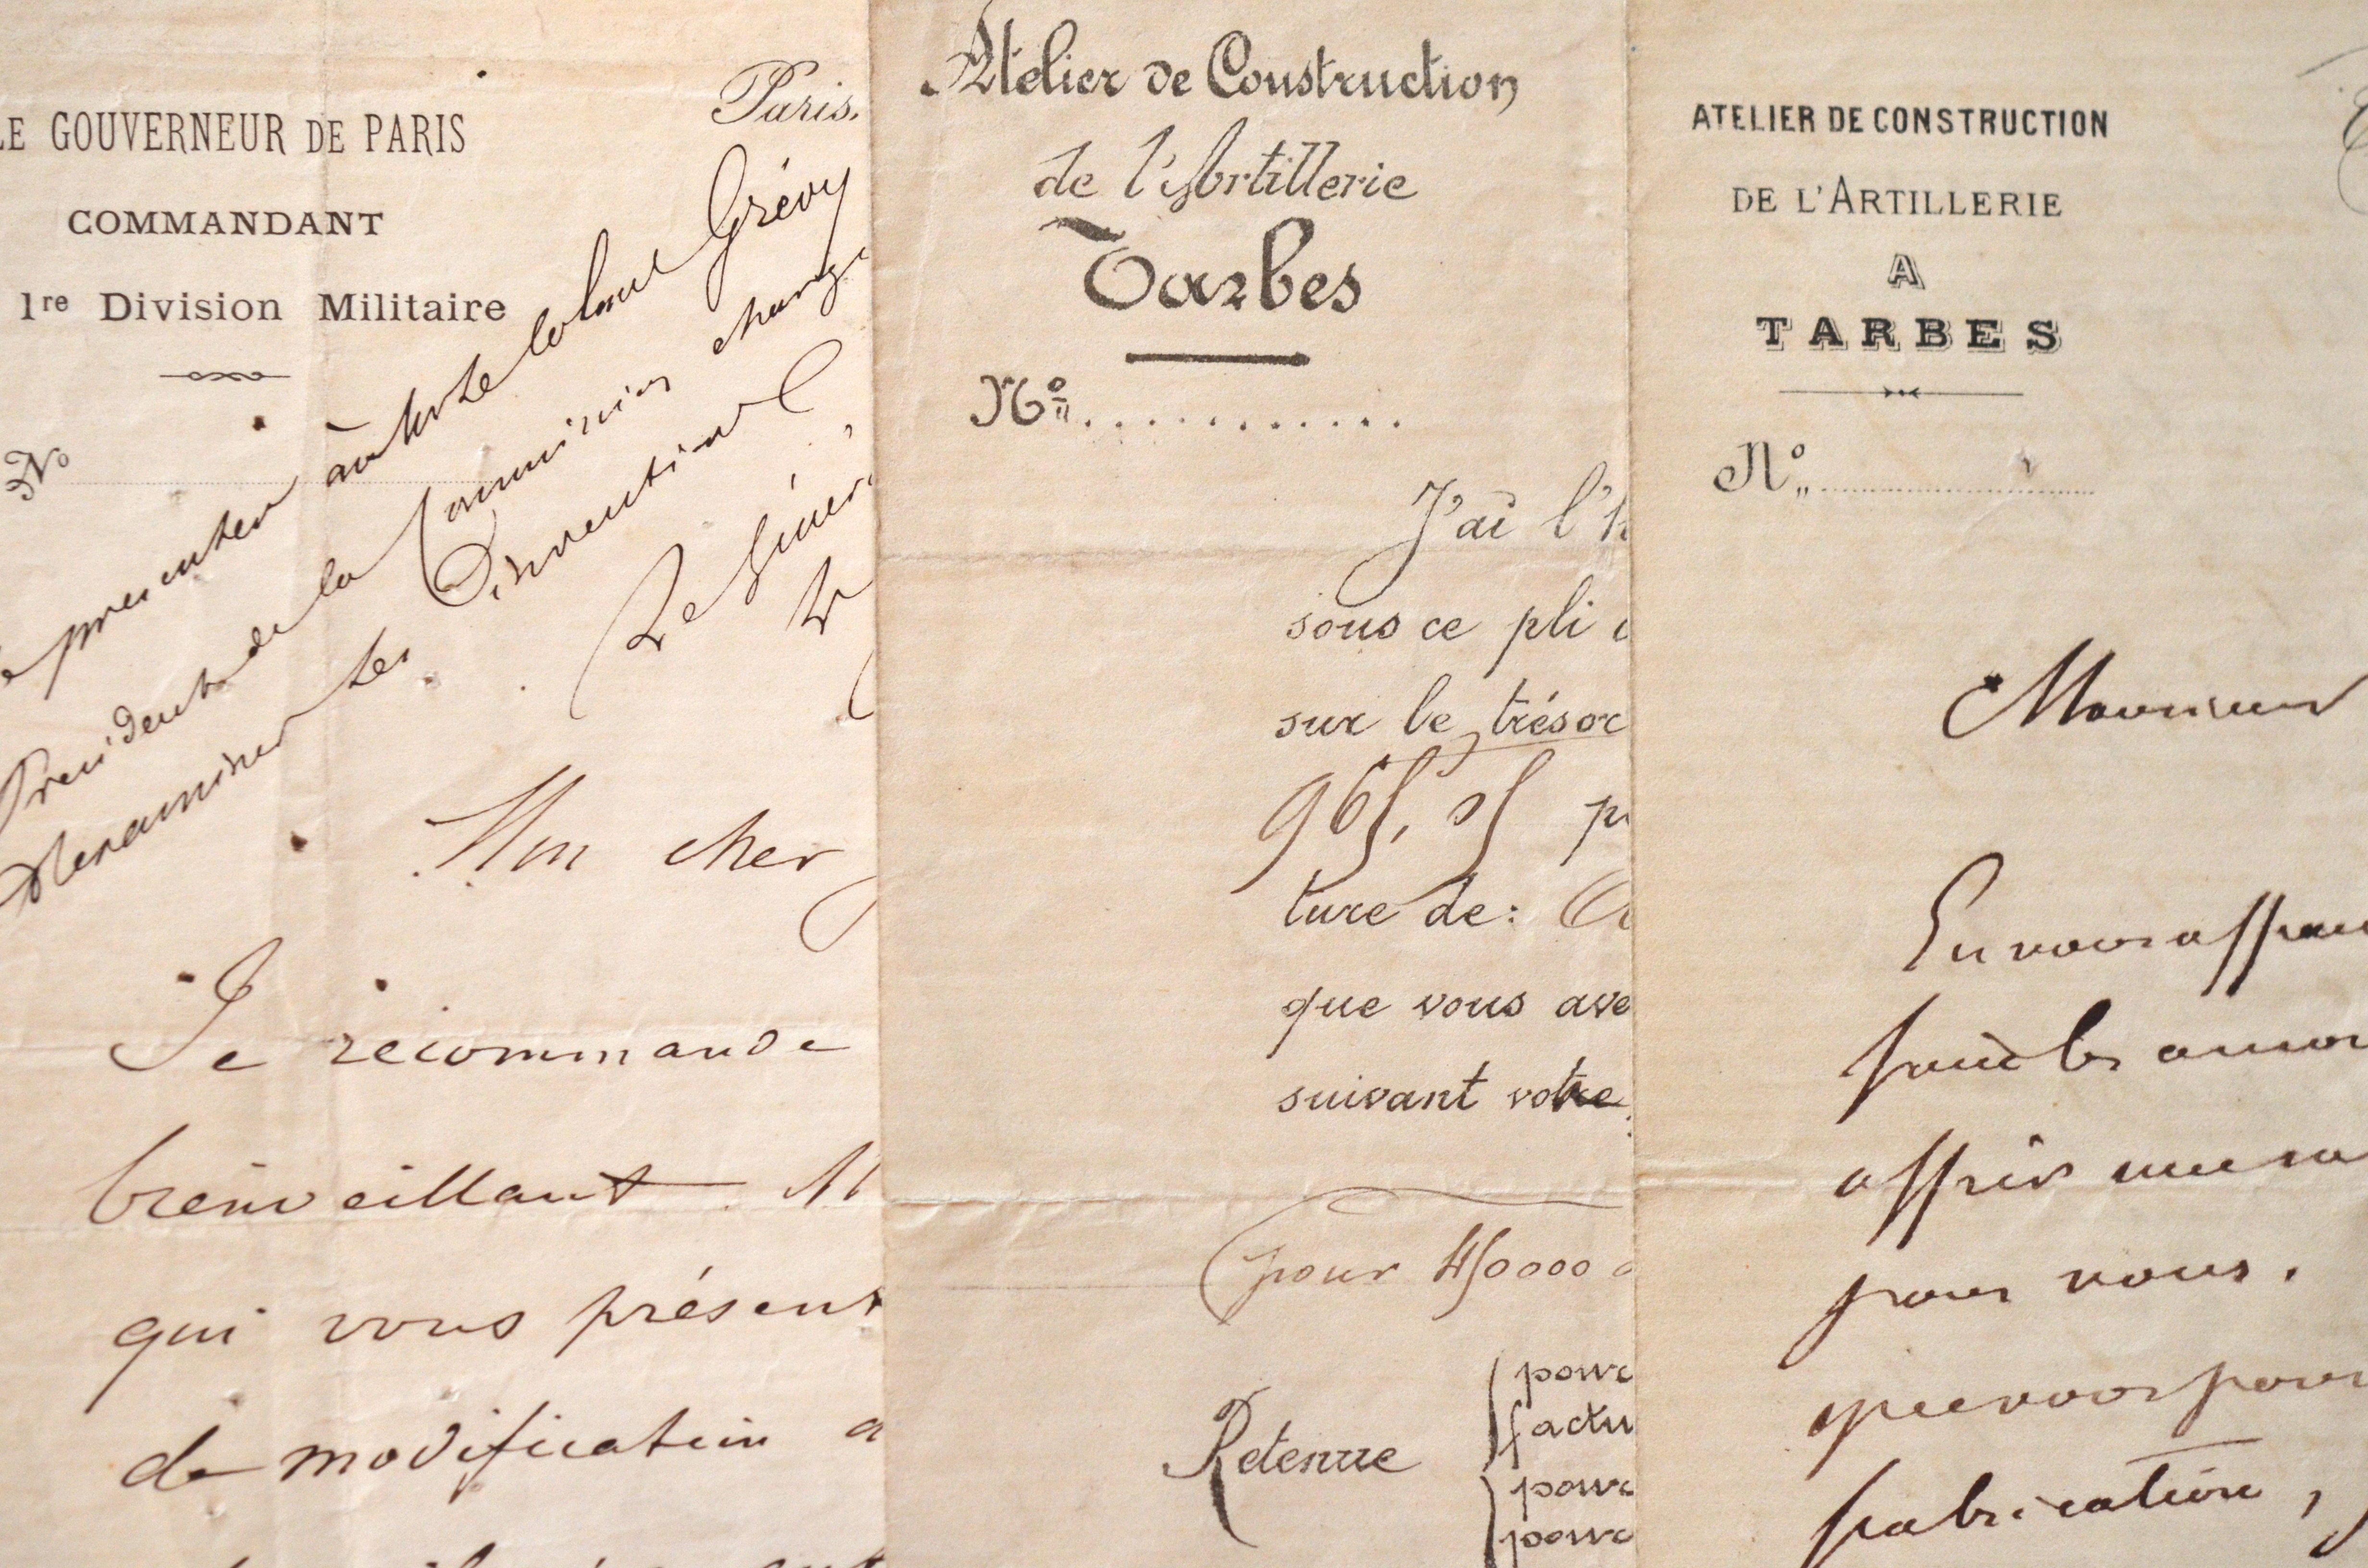 LE GOUVERNEUR DE PARIS
COMMANDANT
1re Division Militaire
Paris.
No
présenter à notre Colonel Grévy
Président de la Commission charg
d'examiner les Inventions
Le Génér
Mon cher
Je recommande
bienveillant M
qui vous présent
de modification a
Atelier de Construction
de l'Artillerie
Tarbes
No............
J'ai l'h
sous ce pli
sur le trésor
965,05 p
ture de:
que vous ave
suivant votre
pour 450000
Retenue
pour
factu
pour
pour
ATELIER DE CONSTRUCTION
DE L'ARTILLERIE
A
TARBES
No
Monsieur
En vous
offrir
pour vous.
que vous pour
fabrication,